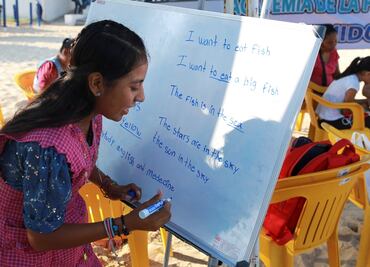 I want to eat fish
I want to eat a big fish
The fish is in the sea
yellow
The stars are in the sky
the sun in the sky
english and medecine
EMIA DE LA